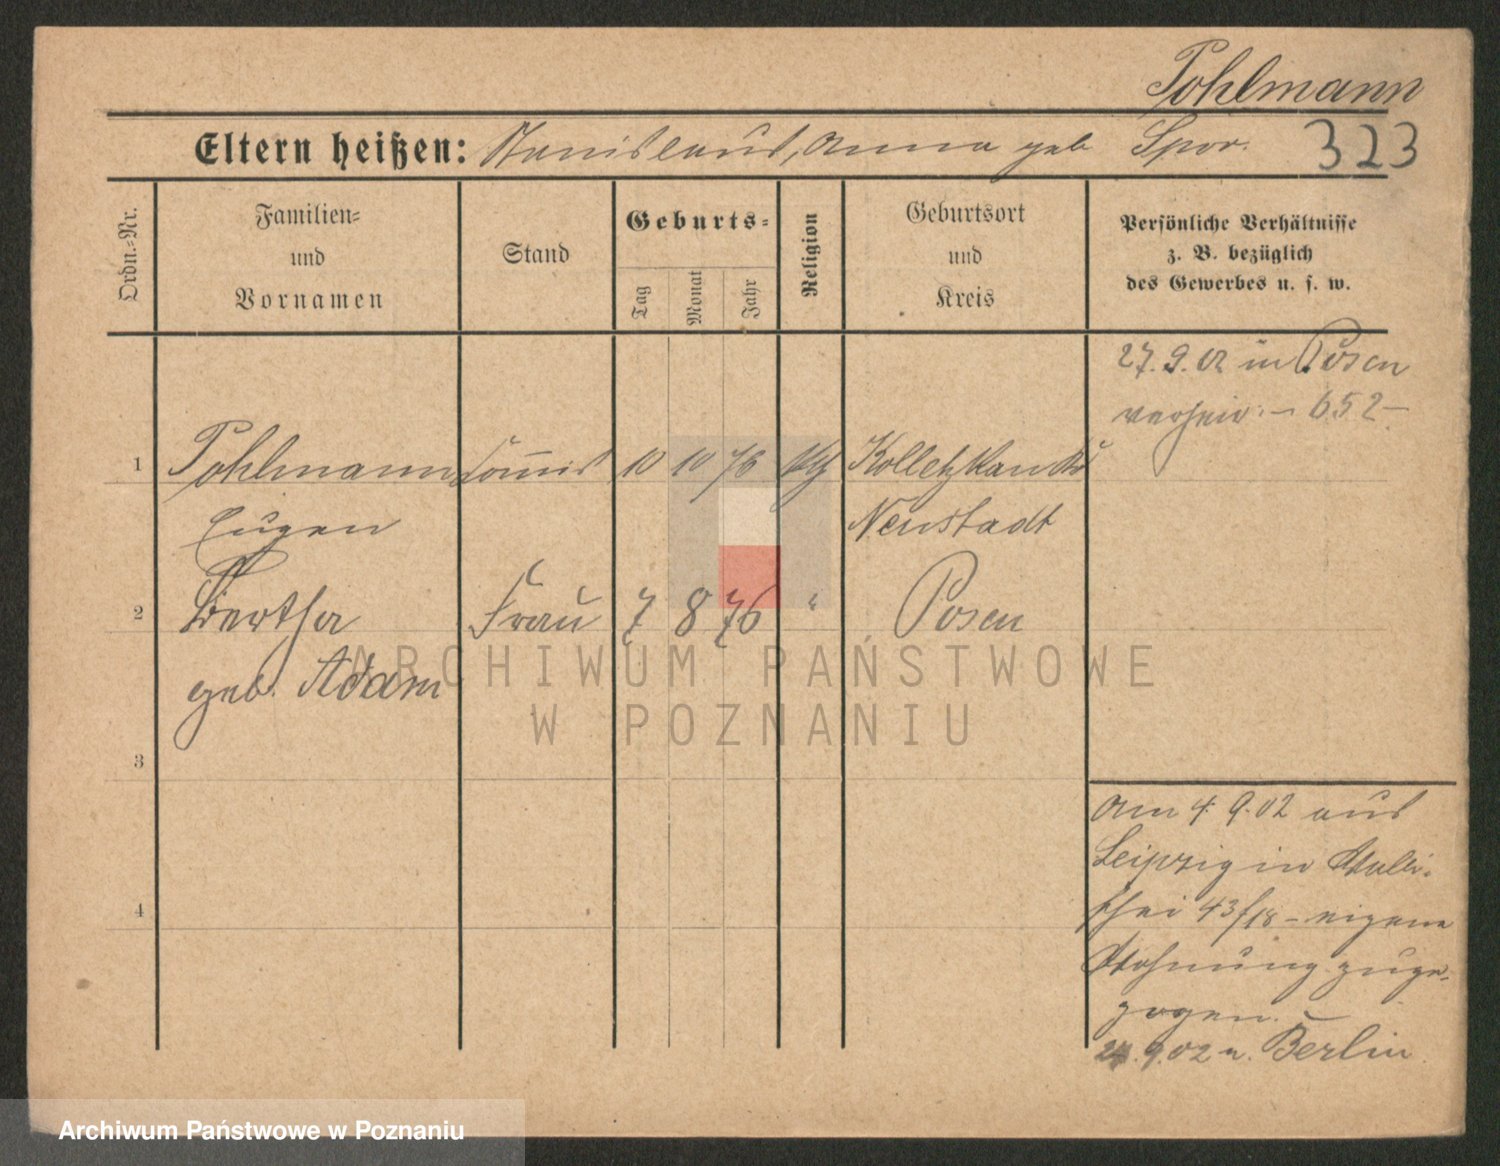 Pohlmann
Eltern heißen: Stanislaus, Anna geb Spor.
323
Ordn.-Nr.
Familien-
und
Vornamen
Stand
Geburts-
Tag
Monat
Jahr
Religion
Geburtsort
und
Kreis
Persönliche Verhältnisse
z. B. bezüglich
des Gewerbes u. s. w.
27. 9. 02 in Posen
verheir. – 652 –
1 Pohlmann Commis 10 10 76
Eugen Neustadt
2 Bertha Frau 7 8 76 " Posen
geb. Adam
3
4
Am 4. 9. 02 aus
Leipzig in Walli-
schei 43/18 – eigene
Wohnung zuge-
zogen. –
9. 02 n. Berlin
ARCHIWUM PAŃSTWOWE
W POZNANIU
Archiwum Państwowe w Poznaniu